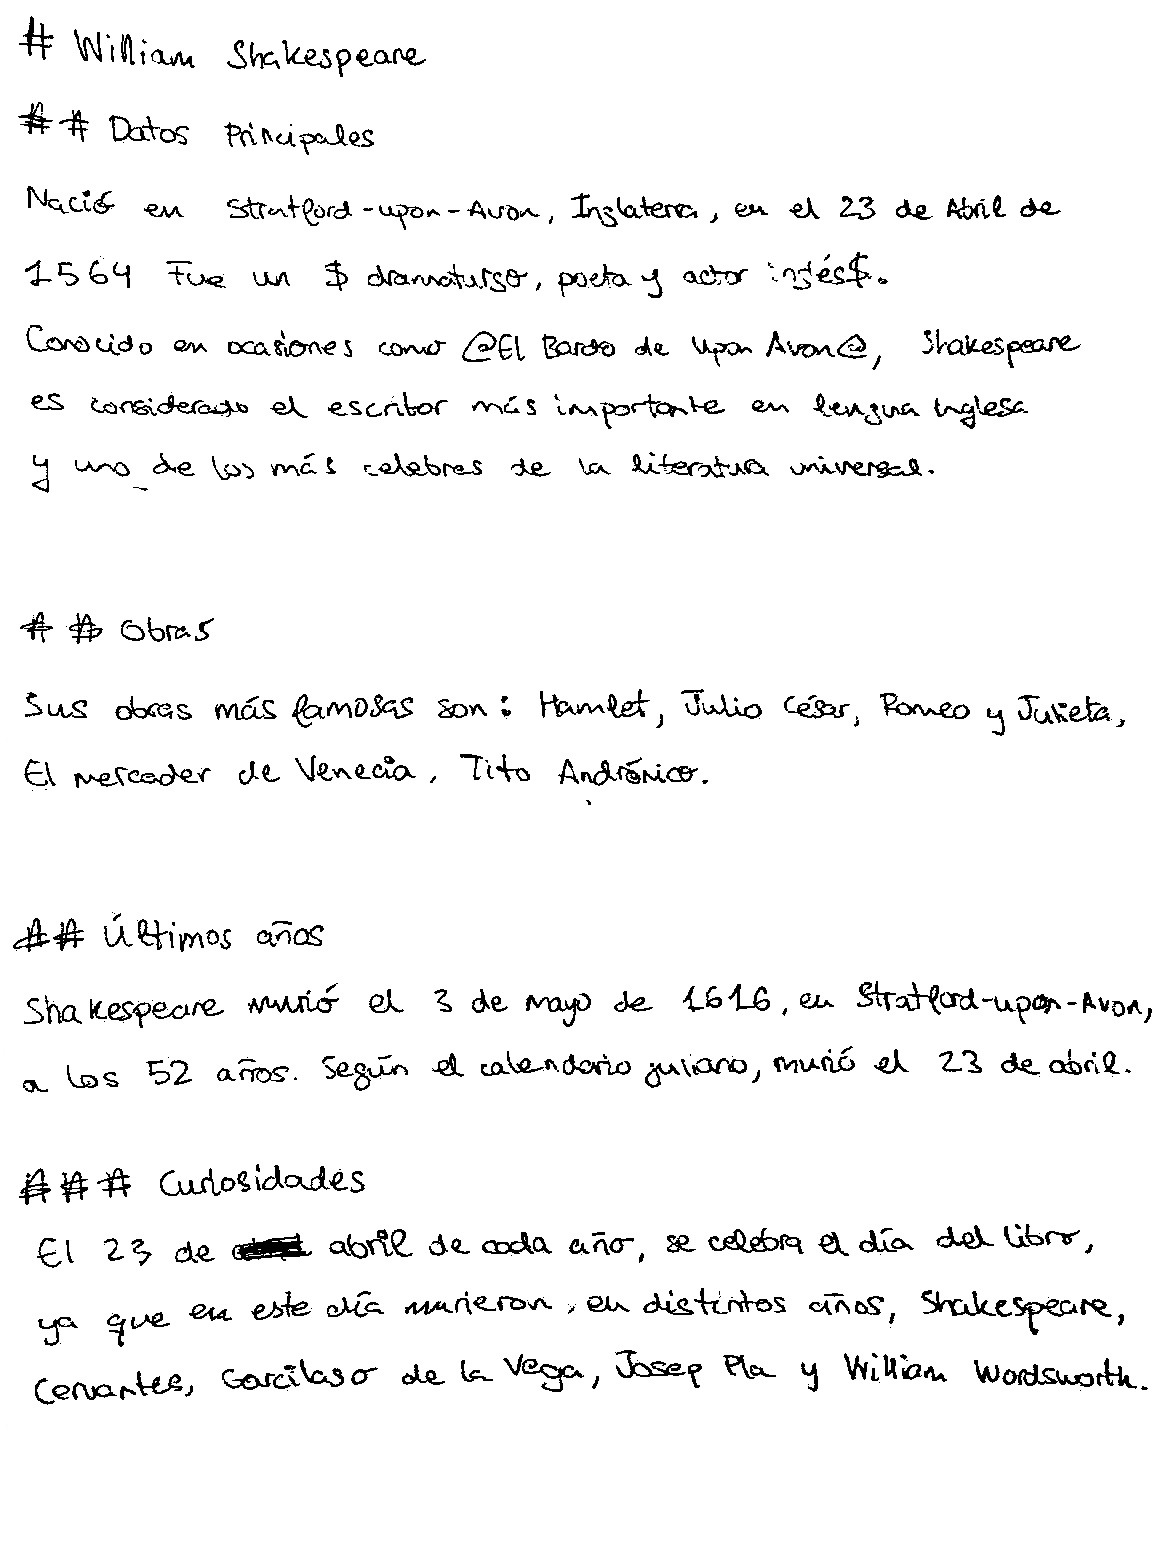 # William Shakespeare
## Datos Principales
Nació en Stratford-upon-Avon, Inglaterra, en el 23 de Abril de
1564 Fue un $ dramaturgo, poeta y actor inglés$.
Conocido en ocasiones como @El Bardo de Upon Avon@, Shakespeare
es considerado el escritor más importante en lengua inglesa
y uno de los más celebres de la literatura universal.
## Obras
Sus obras más famosas son: Hamlet, Julio César, Romeo y Julieta,
El mercader de Venecia, Tito Andrónico.
## Últimos años
Shakespeare murió el 3 de mayo de 1616, en Stratford-upon-Avon,
a los 52 años. Según el calendario juliano, murió el 23 de abril.
### Curiosidades
El 23 de abril de cada año, se celebra el día del libro,
ya que en este día murieron, en distintos años, Shakespeare,
Cervantes, Garcilaso de la Vega, Josep Pla y William Wordsworth.